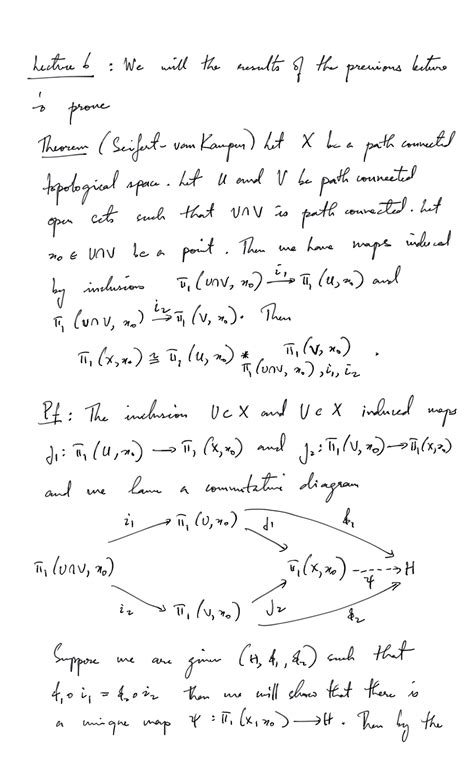 Lecture 6 : We will the results of the previous lecture
to prove
Theorem (Seifert-van Kampen) Let X be a path connected
topological space. Let U and V be path connected
open sets such that U∩V is path connected. Let
x₀ ∈ U∩V be a point. Then we have maps induced
by inclusions π₁(U∩V, x₀) →^{i₁} π₁(U, x₀) and
π₁(U∩V, x₀) →^{i₂} π₁(V, x₀). Then
π₁(X, x₀) ≅ π₁(U, x₀) *_{π₁(U∩V, x₀), i₁, i₂} π₁(V, x₀) .
Pf : The inclusion U⊂X and V⊂X induced maps
j₁ : π₁(U, x₀) → π₁(X, x₀) and j₂ : π₁(V, x₀) → π₁(X, x₀)
and we have a commutative diagram
i₁ π₁(U, x₀) j₁ φ₁
π₁(U∩V, x₀) π₁(X, x₀) ---> H
ψ
i₂ π₁(V, x₀) j₂ φ₂
Suppose we are given (H, φ₁, φ₂) such that
φ₁∘i₁ = φ₂∘i₂ then we will show that there is
a unique map ψ : π₁(X, x₀) → H. Then by the